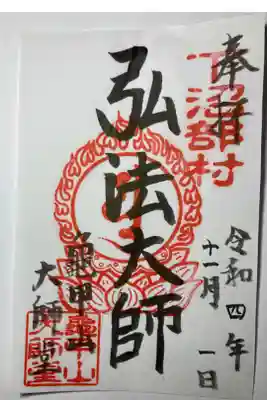 奉拝
下沼部村
令和四年
十一月一日
弘法大師
亀甲山
大師堂